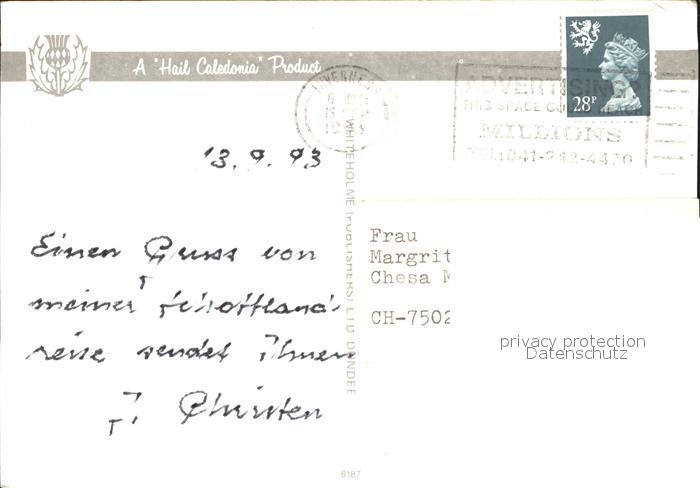 A "Hail Caledonia" Product
INVERNESS
28P
ADVERTISING
THIS SPACE COULD REACH
MILLIONS
TEL:041-242-4470
13.9.93
WHITEHOLME (PUBLISHERS) LTD DUNDEE
Einen Gruss von
meiner Schottland-
reise sendet Ihnen
J. Christen
Frau
Margrit
Chesa M
CH-7502
privacy protection
Datenschutz
8187